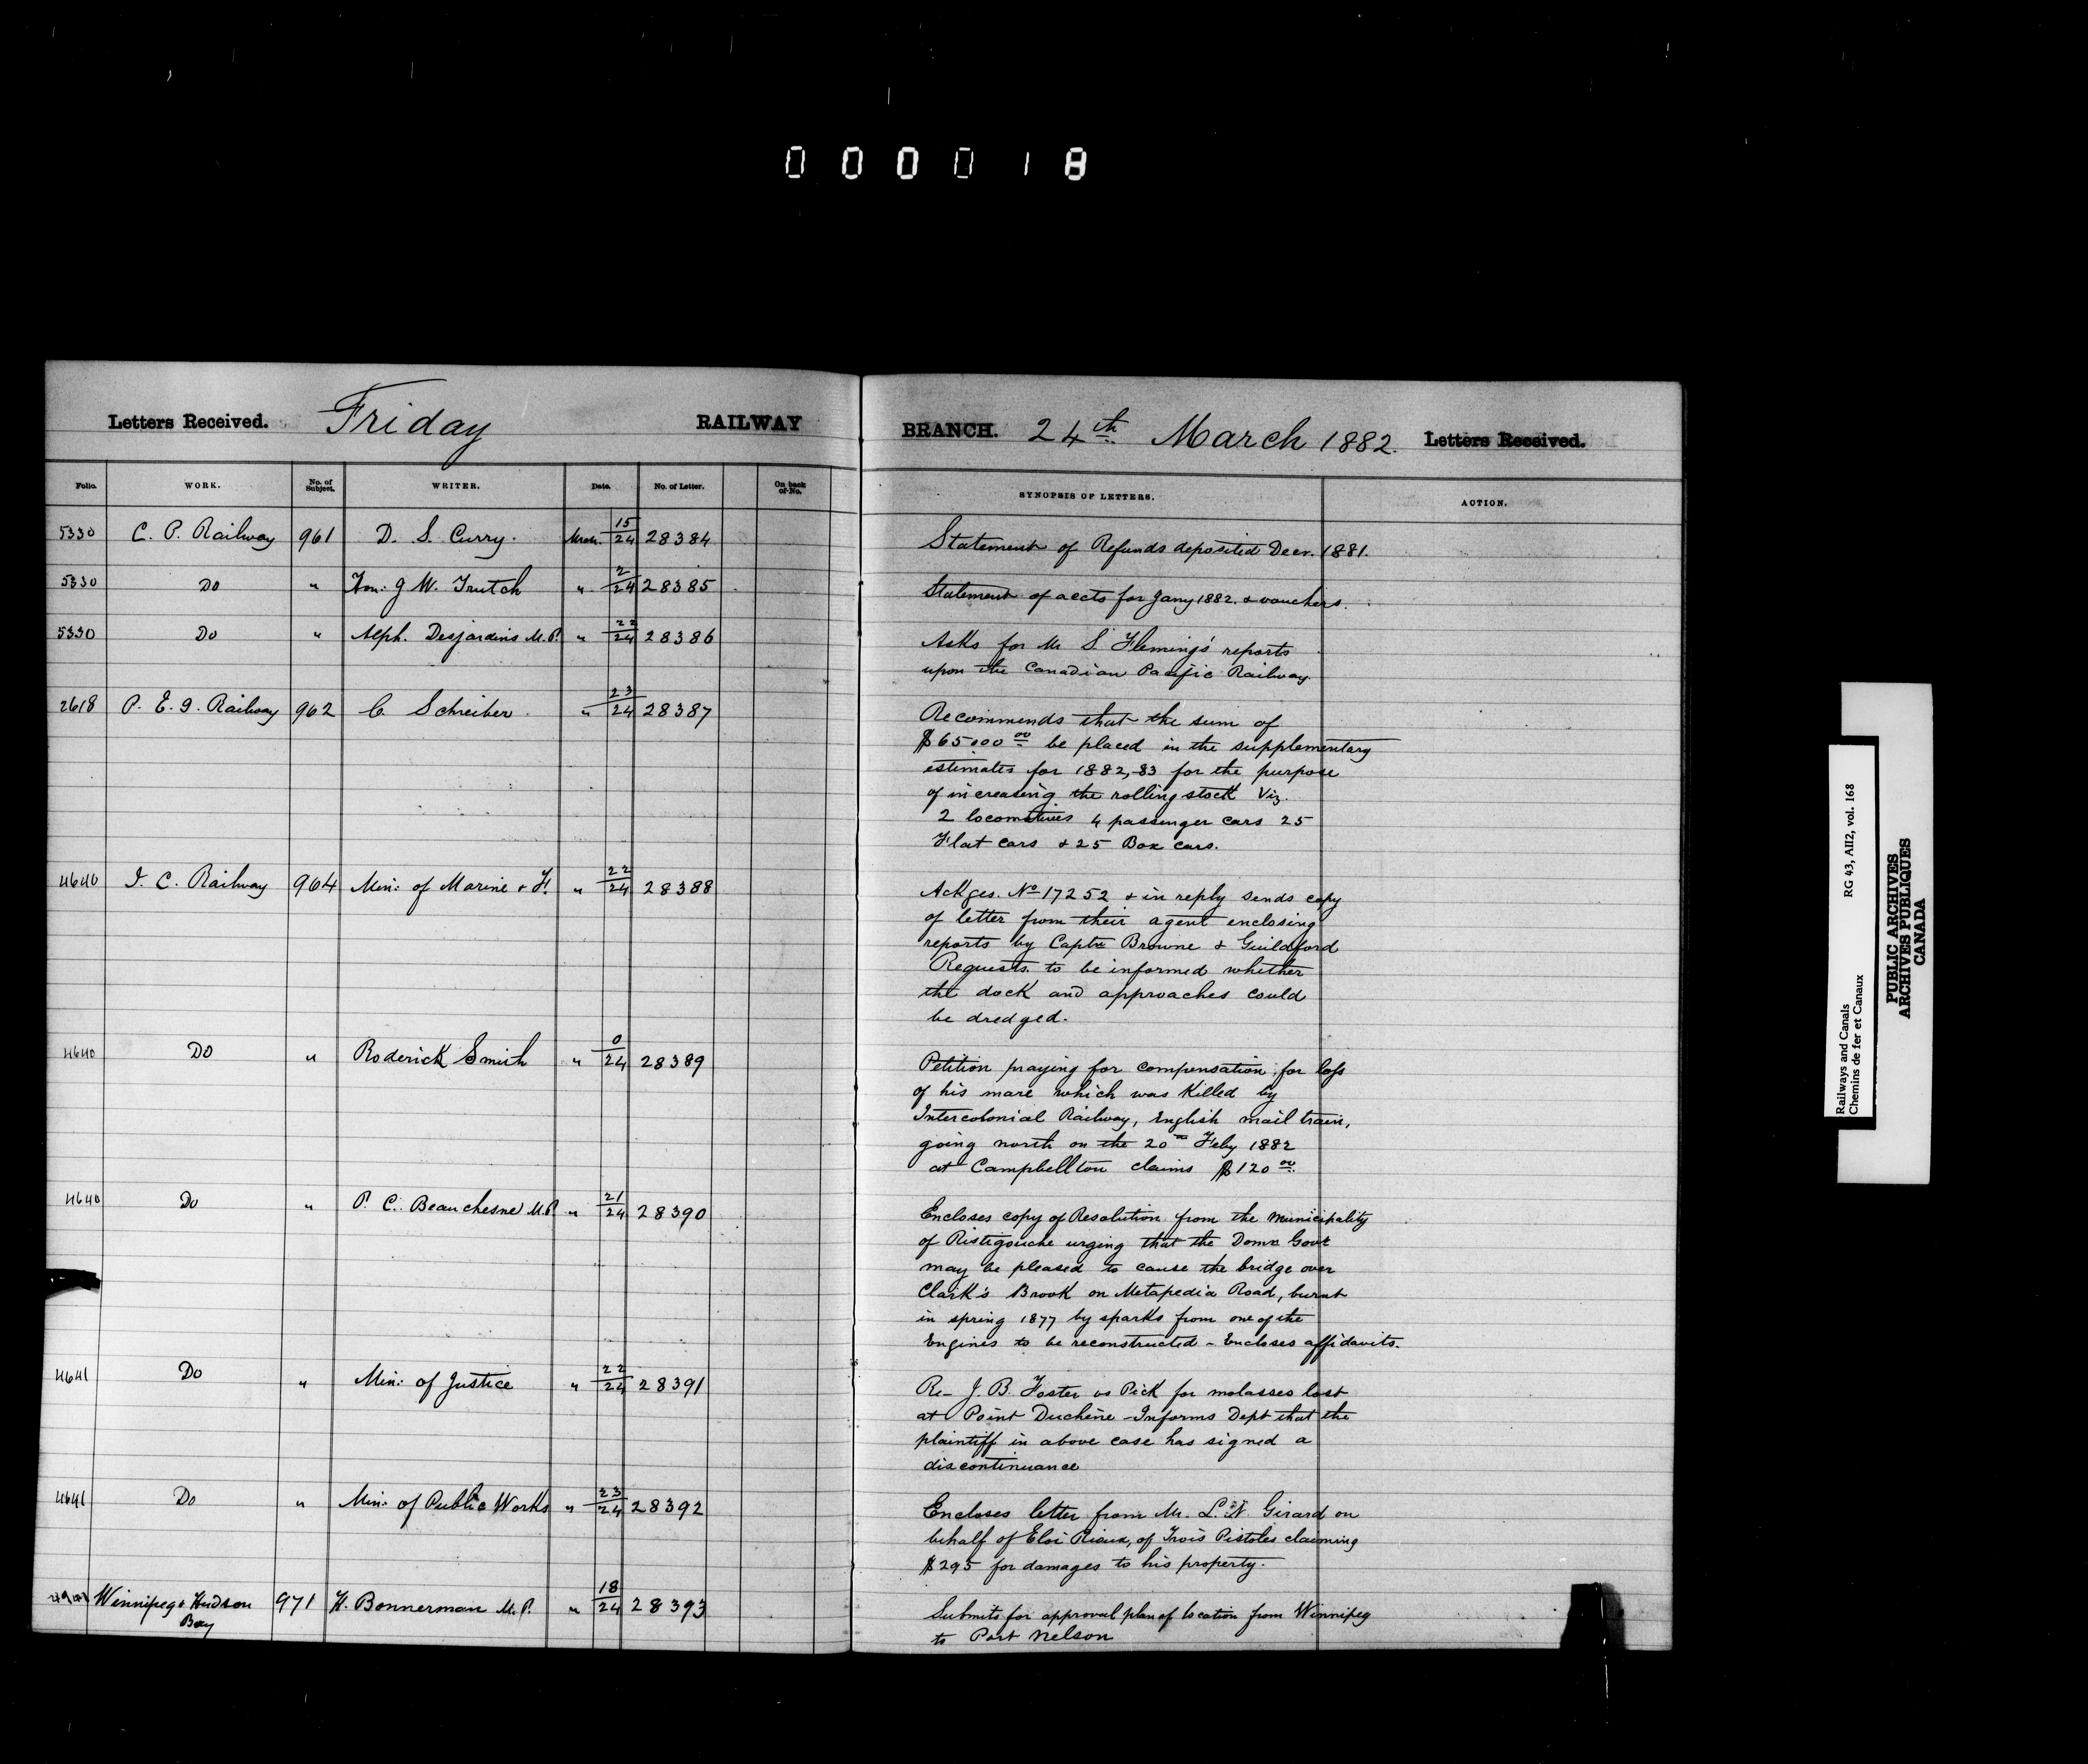 000018
Letters Received. Friday RAILWAY BRANCH. 24th March 1882. Letters Received.
Folio. WORK. No. of Subject. WRITER. Date. No. of Letter. On back of No. SYNOPSIS OF LETTERS. ACTION.
5330 C. P. Railway 961 D. S. Curry. Mch. 15/24 28384 Statement of Refunds deposited Decr. 1881.
5330 Do " Hon: J W. Trutch " 2/24 28385 Statement of accts for Jany 1882. & vouchers.
5330 Do " Alph. Desjardins M.P. " 22/24 28386 Asks for Mr S Fleming's reports
upon the Canadian Pacific Railway.
2618 P. E. I. Railway 962 C. Schreiber " 23/24 28387 Recommends that the sum of
$65000 00 be placed in the supplementary
estimates for 1882,-83 for the purpose
of increasing the rolling stock Viz.
2 locomotives 4 passenger cars 25
Flat cars & 25 Box cars.
4640 I. C. Railway 964 Min: of Marine & F. " 22/24 28388 Ackges. No 17252 & in reply sends copy
of letter from their agent enclosing
reports by Captn Browne & Guildford
Requests to be informed whether
the dock and approaches could
be dredged.
4640 Do " Roderick Smith " 0/24 28389 Petition praying for compensation for loss
of his mare which was killed by
Intercolonial Railway, English mail train,
going north on the 20th Feby 1882
at Campbellton claims $120 00
4640 Do " P. C. Beauchesne M.P. " 21/24 28390 Encloses copy of Resolution from the Municipality
of Ristigouche urging that the Domn Govt
may be pleased to cause the bridge over
Clark's Brook on Metapedia Road, burnt
in spring 1877 by sparks from one of the
Engines to be reconstructed - Encloses affidavits.
4641 Do " Min: of Justice " 22/24 28391 Re- J. B. Foster vs Pick for molasses lost
at Point Duchêne - Informs Dept that the
plaintiff in above case has signed a
discontinuance
4641 Do " Min: of Public Works " 23/24 28392 Encloses letter from Mr. L. N. Girard on
behalf of Eloi Rioux, of Trois Pistoles claiming
$295 for damages to his property.
Winnipeg & Hudson Bay 971 H. Bonnerman M.P. " 18/24 28393 Submits for approval plan of location from Winnipeg
to Port Nelson
Railways and Canals RG 43, AII2, vol. 168
Chemins de fer et Canaux
PUBLIC ARCHIVES
ARCHIVES PUBLIQUES
CANADA